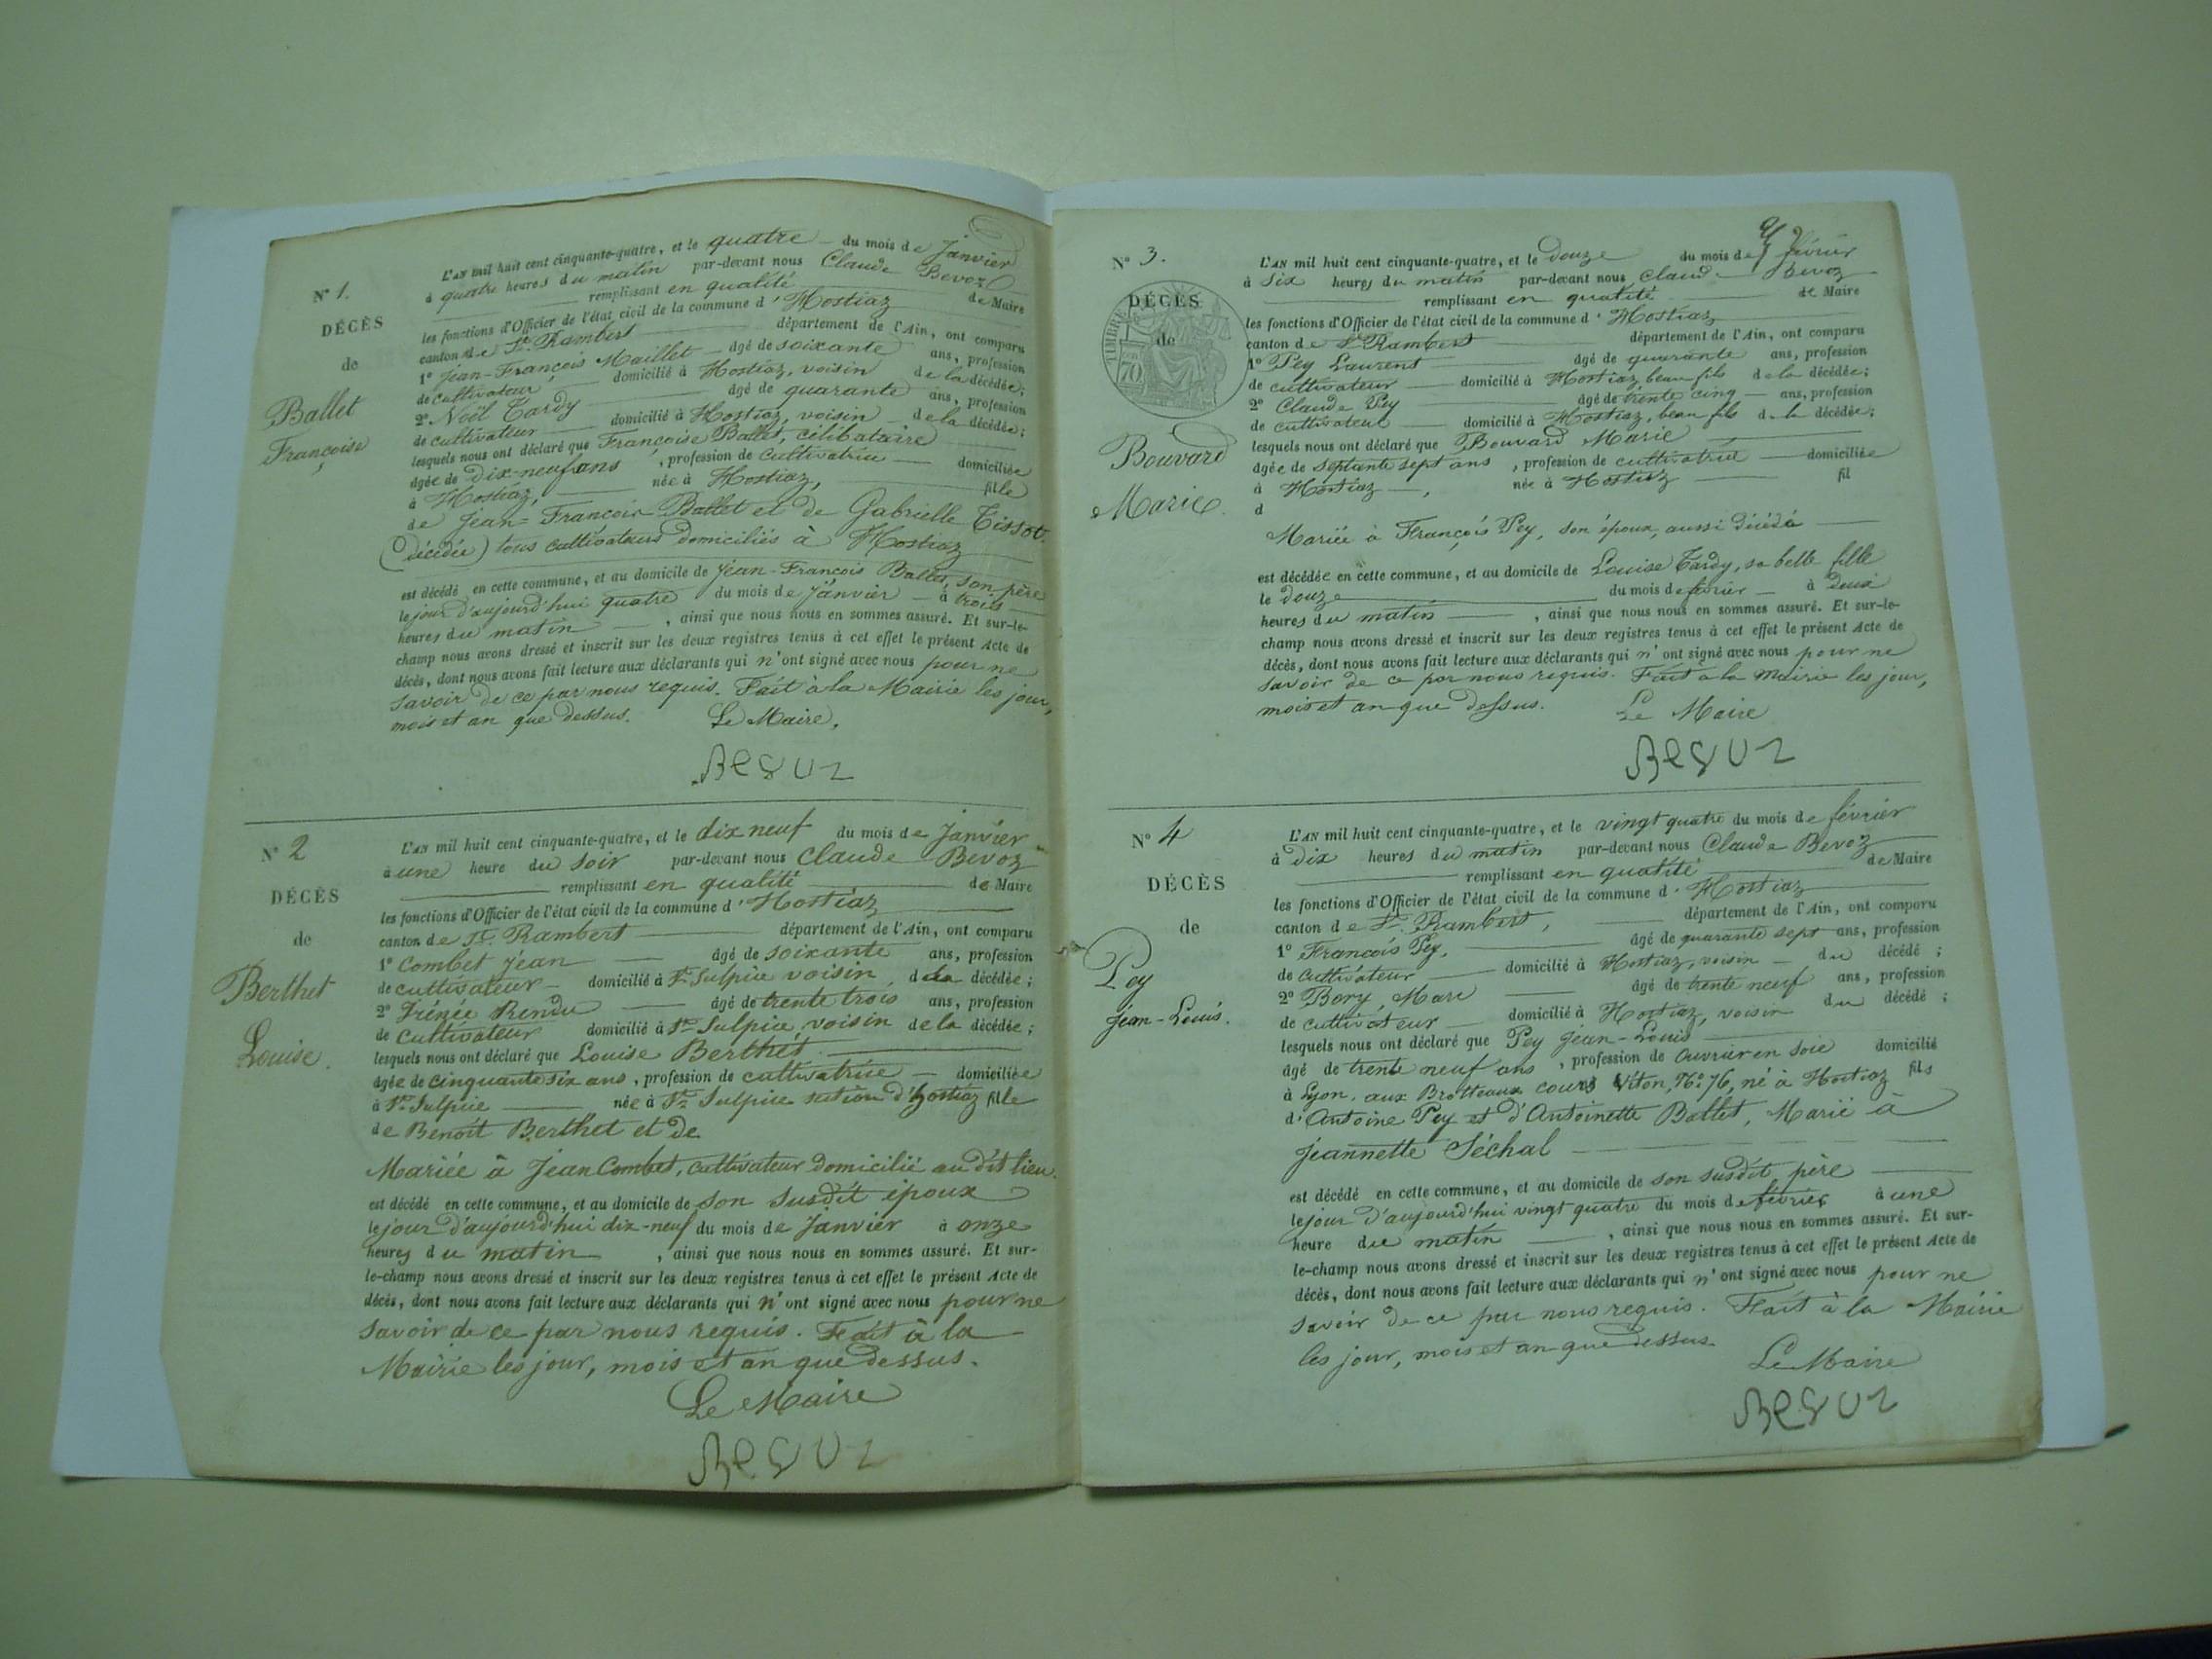 N° 1.
DÉCÈS
de
Ballet
Françoise
L'AN mil huit cent cinquante-quatre, et le quatre du mois de Janvier
à quatre heures du matin par-devant nous Claude Bevoz
remplissant en qualité de Maire
les fonctions d'Officier de l'état civil de la commune d'Hostiaz
canton de St. Rambert département de l'Ain, ont comparu
1° Jean-François Maillet âgé de soixante ans, profession
de cultivateur domicilié à Hostiaz, voisin de la décédée;
2° Noël Tardy âgé de quarante ans, profession
de cultivateur domicilié à Hostiaz, voisin de la décédée;
lesquels nous ont déclaré que Françoise Ballet, célibataire
âgée de dix-neuf ans, profession de cultivatrice domiciliée
à Hostiaz, née à Hostiaz, fille
de Jean-François Ballet et de Gabrielle Tissot.
(décédée) tous cultivateurs domiciliés à Hostiaz
est décédé en cette commune, et au domicile de Jean-François Ballet, son père
le jour d'aujourd'hui quatre du mois de Janvier à trois
heures du matin, ainsi que nous nous en sommes assuré. Et sur-le-
champ nous avons dressé et inscrit sur les deux registres tenus à cet effet le présent Acte de
décès, dont nous avons fait lecture aux déclarants qui n'ont signé avec nous pour ne
savoir de ce par nous requis. Fait à la Mairie les jour,
mois et an que dessus. Le Maire.
Bevoz
N° 2
DÉCÈS
de
Berthet
Louise.
L'AN mil huit cent cinquante-quatre, et le dix neuf du mois de Janvier
à une heure du soir par-devant nous Claude Bevoz
remplissant en qualité de Maire
les fonctions d'Officier de l'état civil de la commune d'Hostiaz
canton de St. Rambert département de l'Ain, ont comparu
1° Combet Jean âgé de soixante ans, profession
de cultivateur domicilié à St. Sulpice voisin de la décédée;
2° Irénée Rendu âgé de trente trois ans, profession
de cultivateur domicilié à St. Sulpice, voisin de la décédée;
lesquels nous ont déclaré que Louise Berthet
âgée de cinquante six ans, profession de cultivatrice domiciliée
à St. Sulpice née à St. Sulpice section d'hostiaz fille
de Benoît Berthet et de
Mariée à Jean Combet, cultivateur domicilié au dit lieu.
est décédé en cette commune, et au domicile de son susdit époux
le jour d'aujourd'hui dix-neuf du mois de Janvier à onze
heures du matin, ainsi que nous nous en sommes assuré. Et sur-
le-champ nous avons dressé et inscrit sur les deux registres tenus à cet effet le présent Acte de
décès, dont nous avons fait lecture aux déclarants qui n'ont signé avec nous pour ne
savoir de ce par nous requis. Fait à la
Mairie les jour, mois et an que dessus.
Le Maire
Bevoz
N° 3.
DÉCÈS
de
TIMBRE
70
Bouvard
Marie.
L'AN mil huit cent cinquante-quatre, et le douze du mois de février
à six heures du matin par-devant nous Claude Bevoz
remplissant en qualité de Maire
les fonctions d'Officier de l'état civil de la commune d'Hostiaz
canton de St. Rambert département de l'Ain, ont comparu
1° Pey Laurent âgé de quarante ans, profession
de cultivateur domicilié à Hostiaz, beau fils de la décédée;
2° Claude Pey âgé de trente cinq ans, profession
de cultivateur domicilié à Hostiaz, beau fils de la décédée;
lesquels nous ont déclaré que Bouvard Marie
âgée de septante sept ans, profession de cultivatrice domiciliée
à Hostiaz, née à Hostiaz fil
d
Mariée à François Pey, son époux, aussi décédé
est décédée en cette commune, et au domicile de Louise Tardy, sa belle fille
le douze du mois de février à deux
heures du matin, ainsi que nous nous en sommes assuré. Et sur-le-
champ nous avons dressé et inscrit sur les deux registres tenus à cet effet le présent Acte de
décès, dont nous avons fait lecture aux déclarants qui n'ont signé avec nous pour ne
savoir de ce par nous requis. Fait à la Mairie les jour,
mois et an que dessus. Le Maire
Bevoz
N° 4
DÉCÈS
de
Pey
Jean-Louis.
L'AN mil huit cent cinquante-quatre, et le vingt quatre du mois de février
à dix heures du matin par-devant nous Claude Bevoz
remplissant en qualité de Maire
les fonctions d'Officier de l'état civil de la commune d'Hostiaz
canton de St. Rambert, département de l'Ain, ont comparu
1° François Pey, âgé de quarante sept ans, profession
de cultivateur domicilié à Hostiaz, voisin du décédé;
2° Bory, Marc âgé de trente neuf ans, profession
de cultivateur domicilié à Hostiaz, voisin du décédé;
lesquels nous ont déclaré que Pey Jean-Louis
âgé de trente neuf ans, profession de ouvrier en soie domicilié
à Lyon, aux Brotteaux cours Viton, N° 76, né à Hostiaz fils
d'Antoine Pey et d'Antoinette Ballet, Marié à
Jeannette Séchal
est décédé en cette commune, et au domicile de son susdit père
le jour d'aujourd'hui vingt quatre du mois de février à une
heure du matin, ainsi que nous nous en sommes assuré. Et sur-
le-champ nous avons dressé et inscrit sur les deux registres tenus à cet effet le présent Acte de
décès, dont nous avons fait lecture aux déclarants qui n'ont signé avec nous pour ne
savoir de ce par nous requis. Fait à la Mairie
les jour, mois et an que dessus.
Le Maire
Bevoz